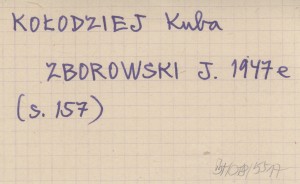 KOŁODZIEJ Kuba
ZBOROWSKI J. 1947e
(s. 157)